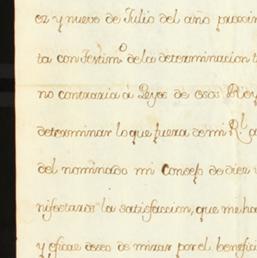 ez y nueve de Julio del año proxim
ta con Testim.o de la determinacion t
no contraria á Leyes de esos Rey
determinar lo que fuera de mi R.l a
del nominado mi Consejo de diez y
nifestaros la satisfaccion, que me ha
y eficaz deseo de mirar por el benefici